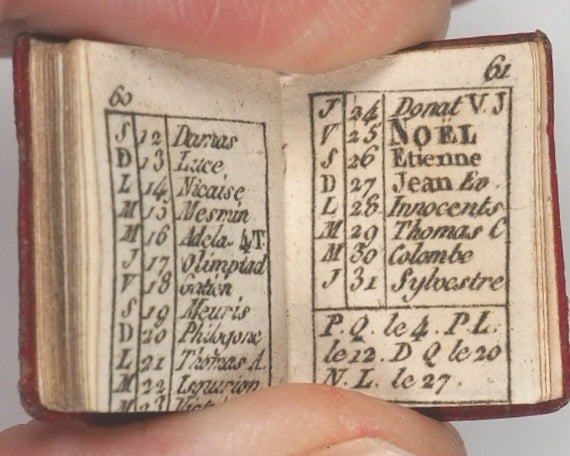 60
S 12 Damas
D 13 Luce
L 14 Nicaise
M 15 Mesmin
M 16 Adela. 4T.
J 17 Olimpiad
V 18 Gatien
S 19 Meuris
D 20 Philogone
L 21 Thomas A.
M 22
M 23
61
J 24 Donat V. J
V 25 NOEL
S 26 Etienne
D 27 Jean Ev.
L 28 Innocents
M 29 Thomas C
M 30 Colombe
J 31 Sylvestre
P. Q. le 4. P. L.
le 12. D Q le 20
N. L. le 27.